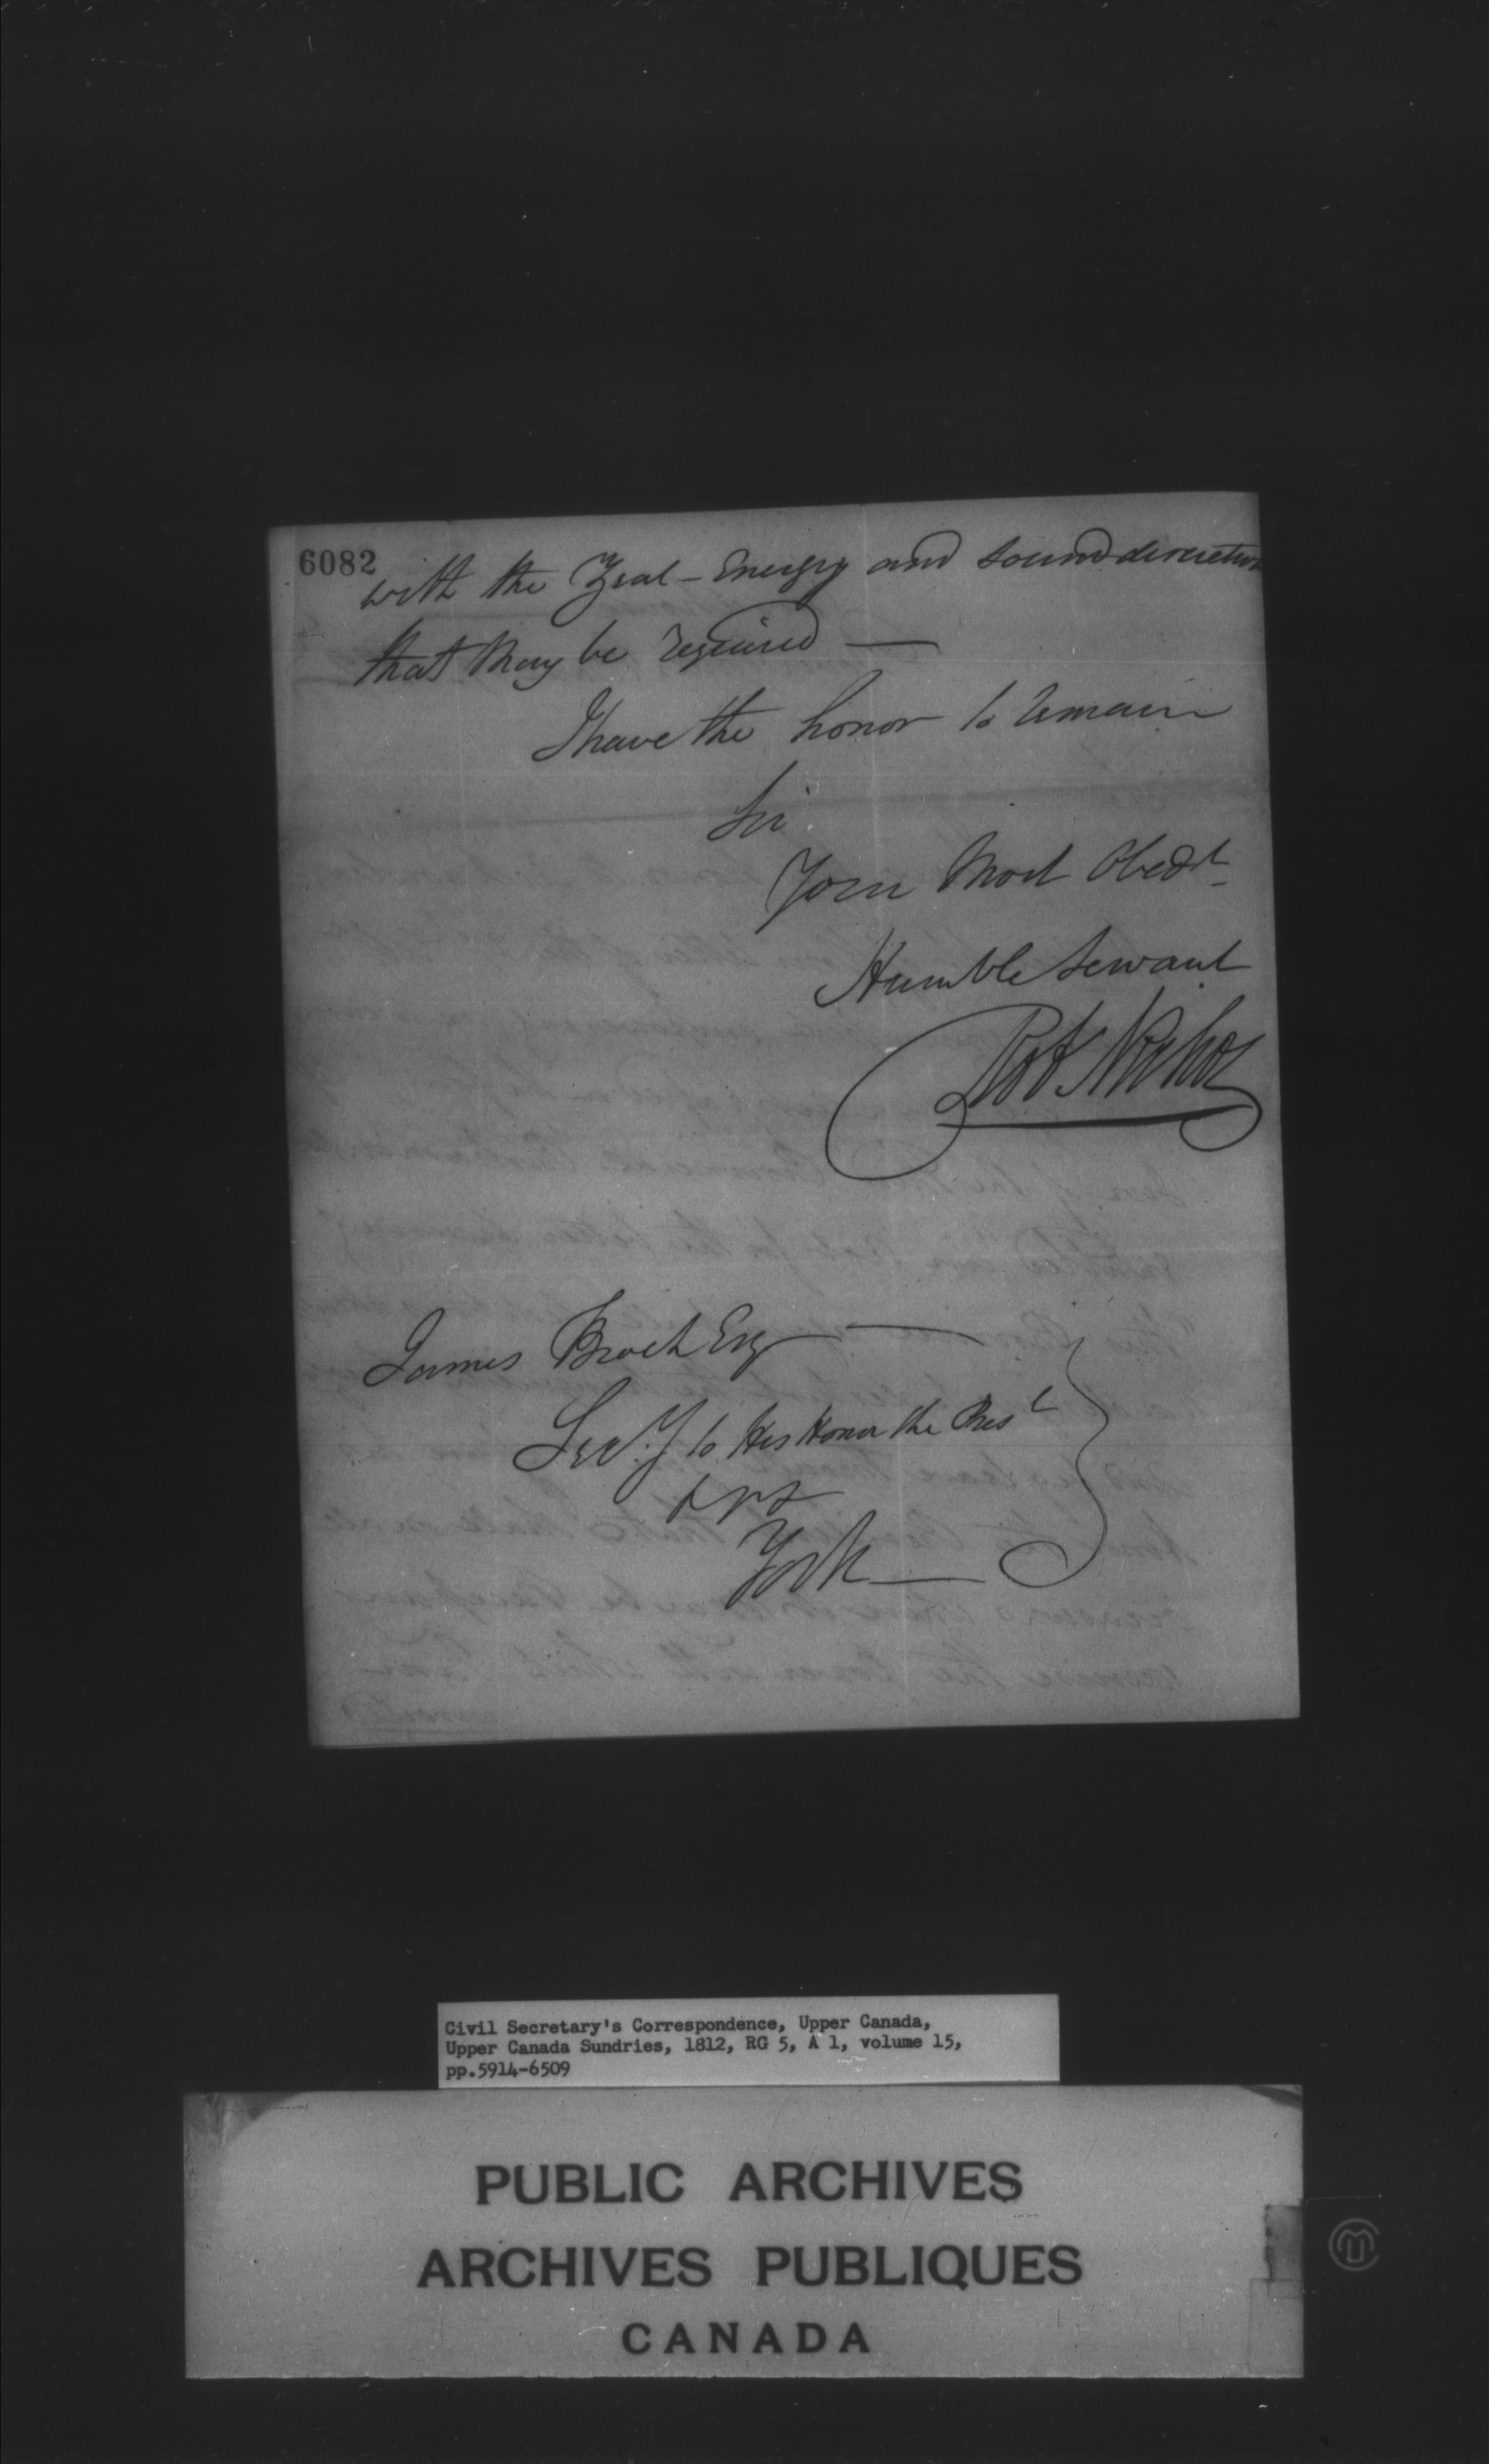 6082
with the Zeal - Energy and sound discretion
that may be required —
I have the honor to remain
Sir
Your Most Obedt
Humble Servant
Robt Nichol
James Brock Esq
Secy to His Honor the Prest
&c &c
York —
Civil Secretary's Correspondence, Upper Canada,
Upper Canada Sundries, 1812, RG 5, A 1, volume 15,
pp.5914-6509
PUBLIC ARCHIVES
ARCHIVES PUBLIQUES
CANADA